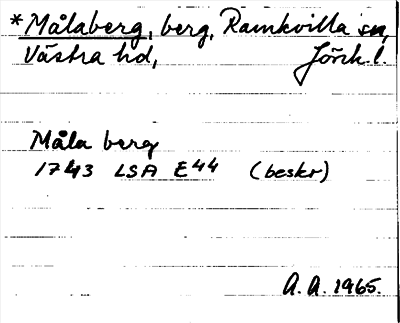 *Målaberg, berg, Ramkvilla sn,
Västra hd, Jönk. l.
Måla berg
1743 LSA E44 (beskr)
A. A. 1965.